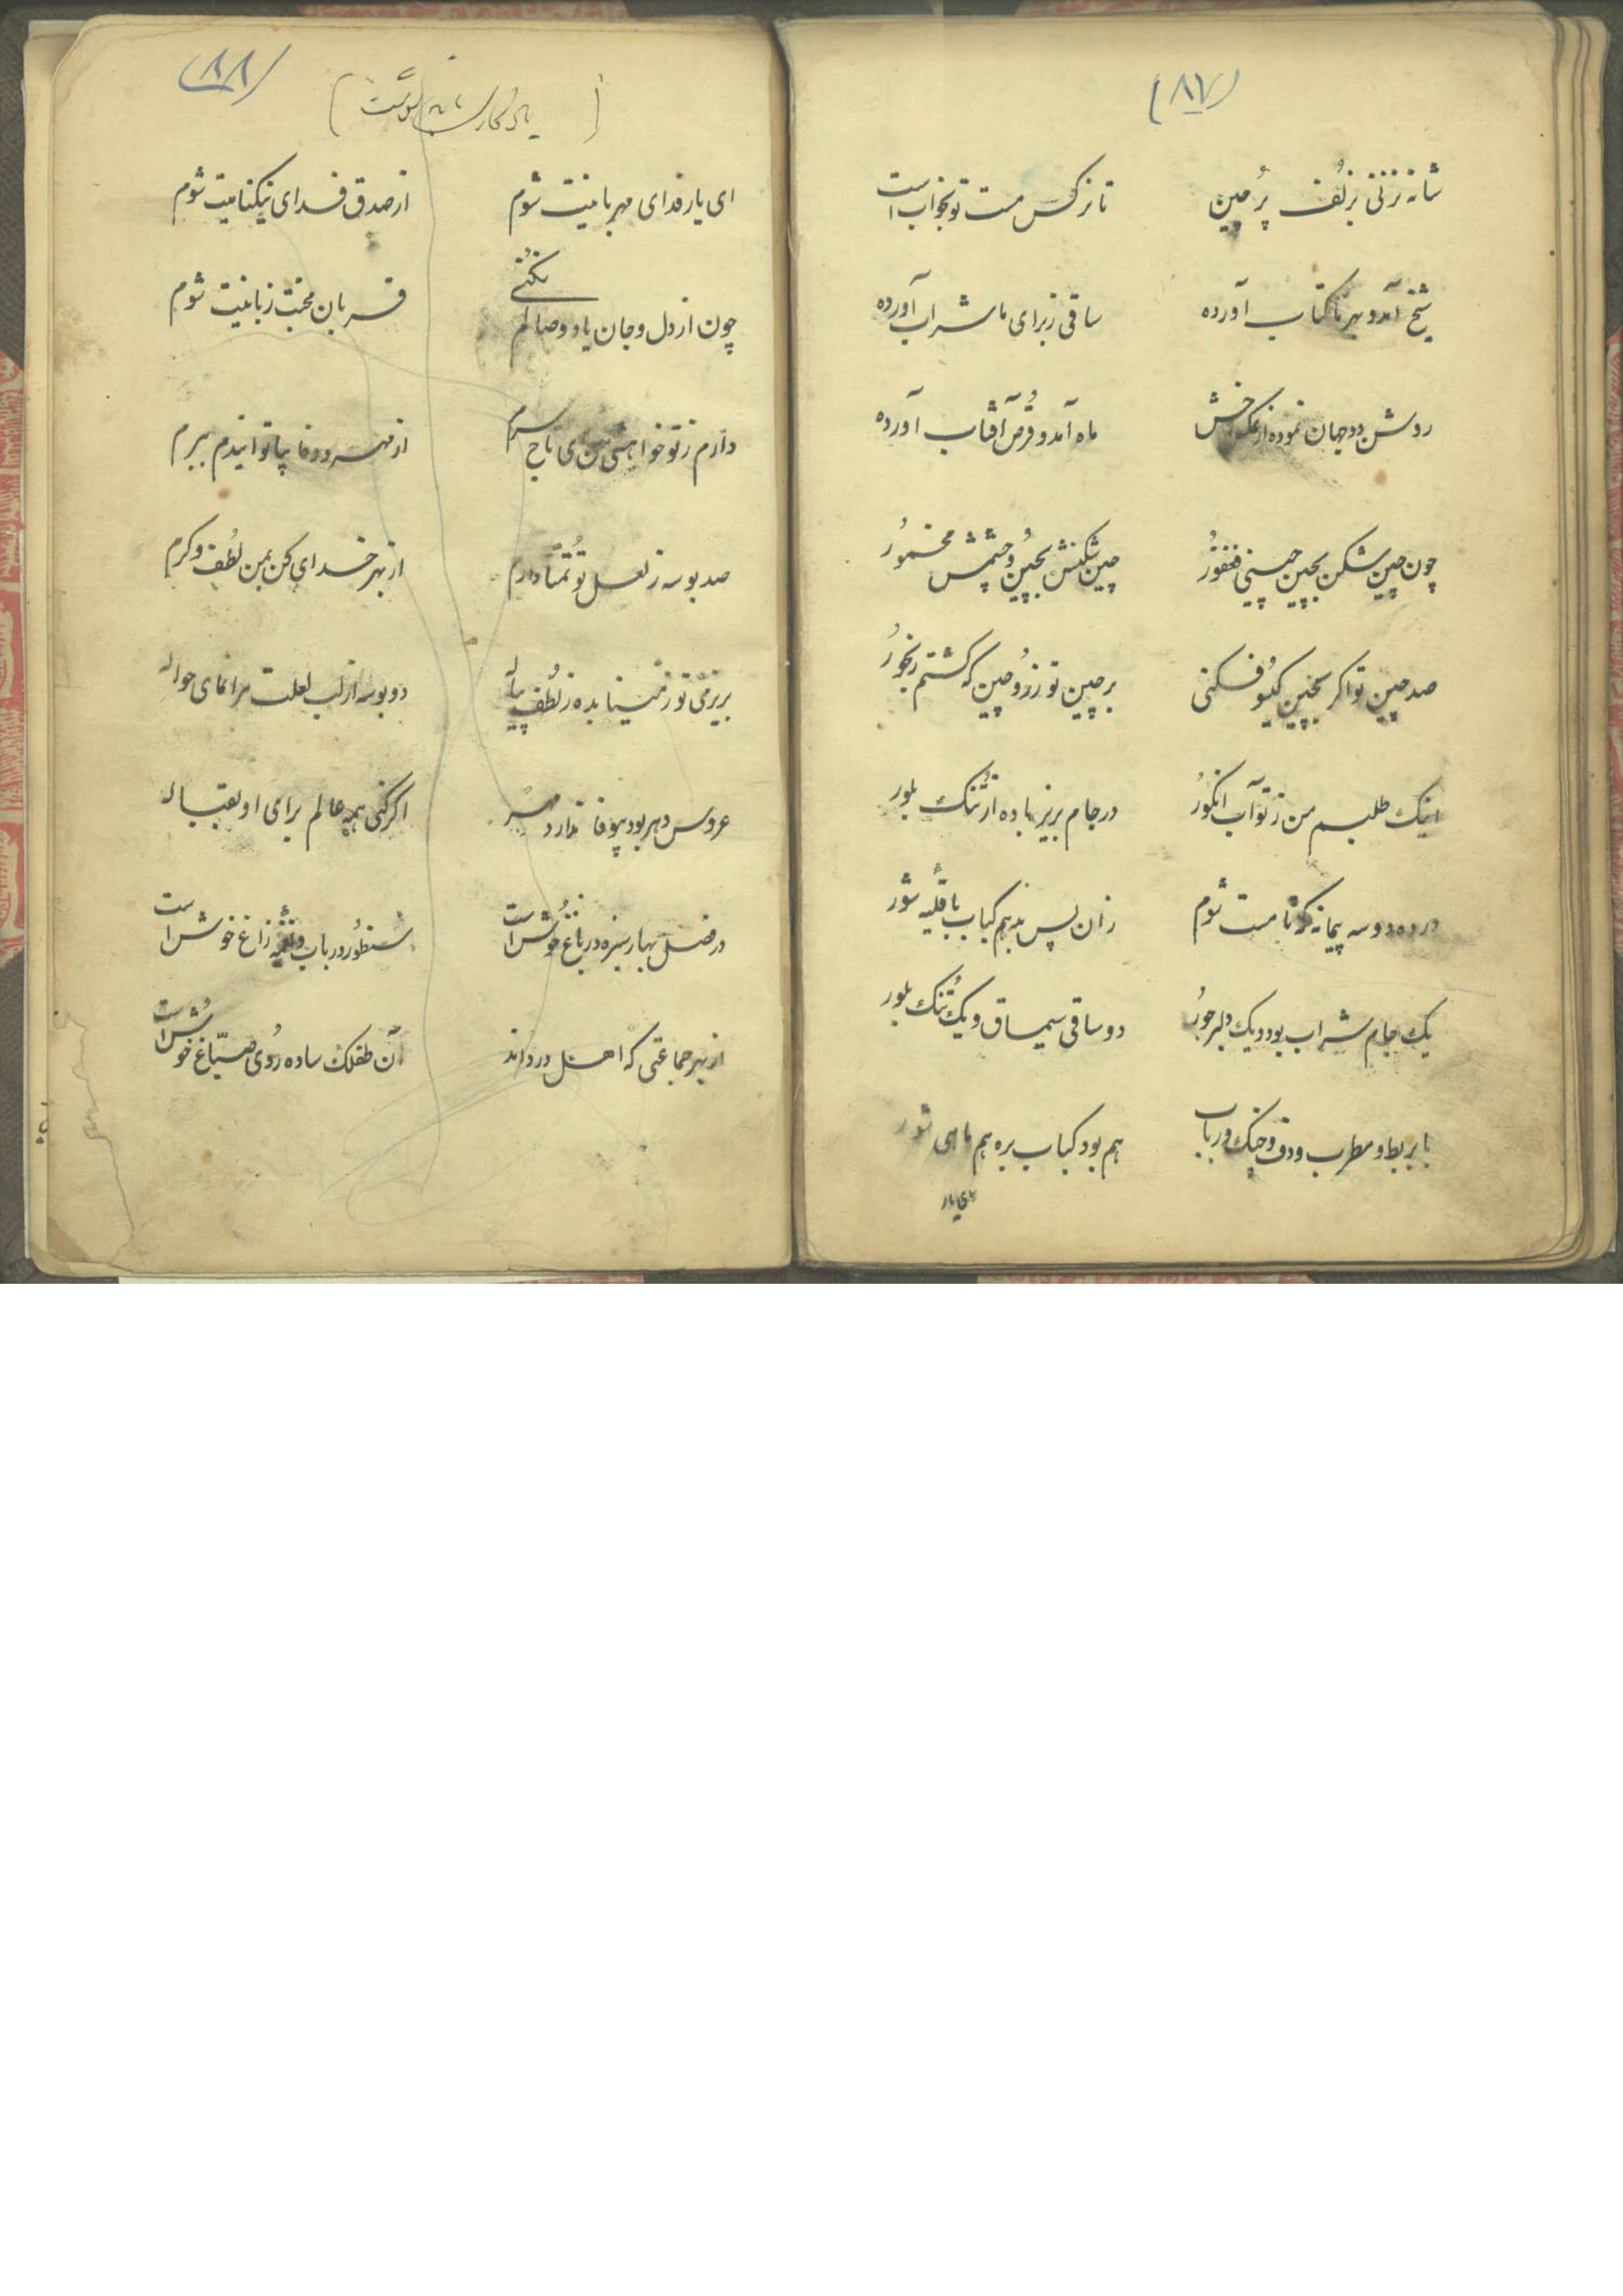 (۸۷)
شانه نزنی بزلف پُر چین تا نرکس مست تو بخواب است
شیخ آمد و بهر ما کتاب آورده ساقی ز برای ما شراب آورده
روشن دو جهان نموده از عکس رخش ماه آمد و قُرص آفتاب آورده
چون چین شکن بچین چینی فغفُور چین شکنش بچین و چشمش مخمُور
صد چین تو اکر بچین کیسُو فکنی بر چین تو ز رُو چین که کشتم رنجُور
اینک طلبم من ز تو آب انکوُر در جام بریز باده از تُنک بلور
در ده دو سه پیمانه که تا مست شوم زان پس بدهم کباب با قلیه شور
یک جام شراب بود و یک دلبر حوُر دو ساقی سیمساق و یک تُنک بلور
با بربط و مطرب و دف و چنک و رباب هم بود کباب بره هم ماهی شور
ای یار
(۸۸)
ای یار فدای مهربانیت شوم از صدق فدای نیکنامیت شوم
چون از دل و جان یاد وصالم نکنُی قربان محبت زبانیت شوم
دارم ز تو خواهشی من ای تاج سرم از مهر و وفا بپا تو اندم ببرم
صد بوسه ز لعل تو تُمنّا دارم از بهر خدای کن بمن لُطف و کرم
بریز می تو ز مینا بده ز لُطف پیاله دو بوسه از لب لعلت مرا نمای حواله
عروس دهر بود بیوفا ندارد مهر اکر کنی همه عالم برای او بقباله
در فصل بهار سبزه در باغ خوُش است سنطوُر و رباب و نغمه زاغ خوش است
از بهر جماعتی که اهل درداند آن طفلک ساده رُوی صبّاغ خوُش است